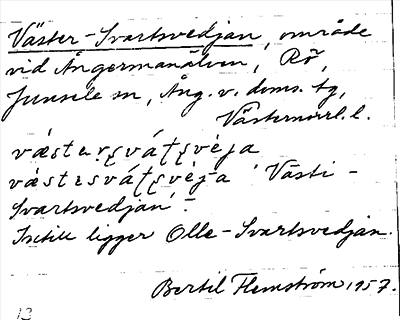 Väster-Svartsvedjan, område
vid Ångermanälven, Rö,
Junsele sn, Ång. v. doms. tg,
Västernorrl. l.
västẹrṣvát̩ṣvèja
västesvát̩ṣvèja 'Västi-
Svartsvedjan'. –
Intill ligger Olle-Svartsvedjan.
Bertil Flemström 1957.
13